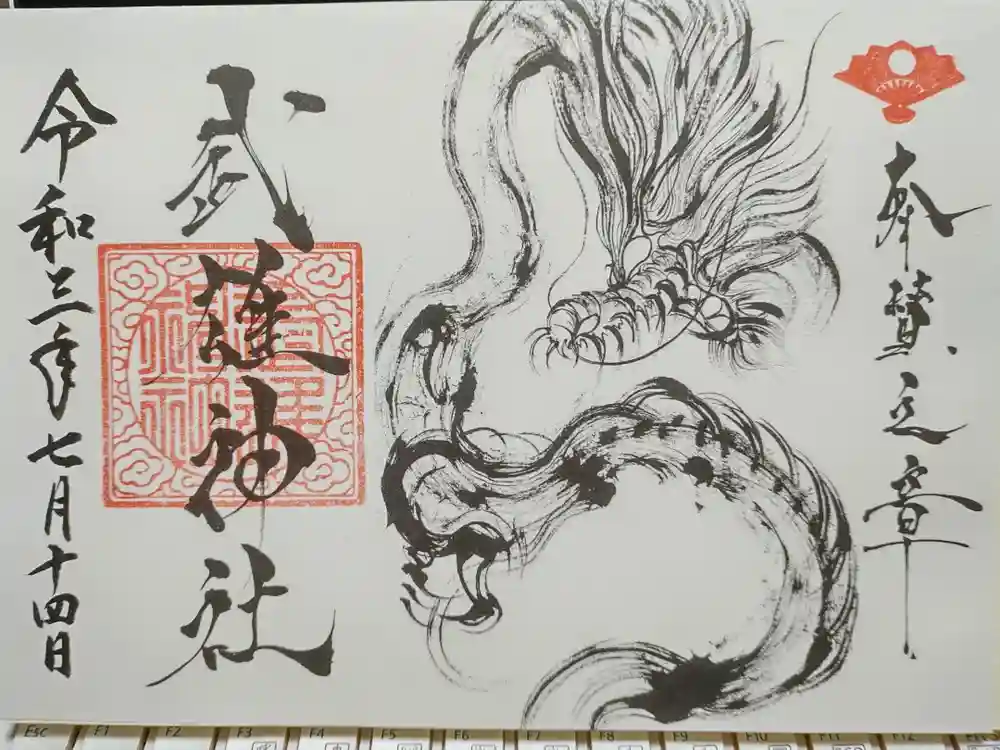 奉賛之章
武護神社
令和三年七月十四日
Esc F1 F2 F3 F4 F5 F6 F7 F8 F9 F10 F11 F12